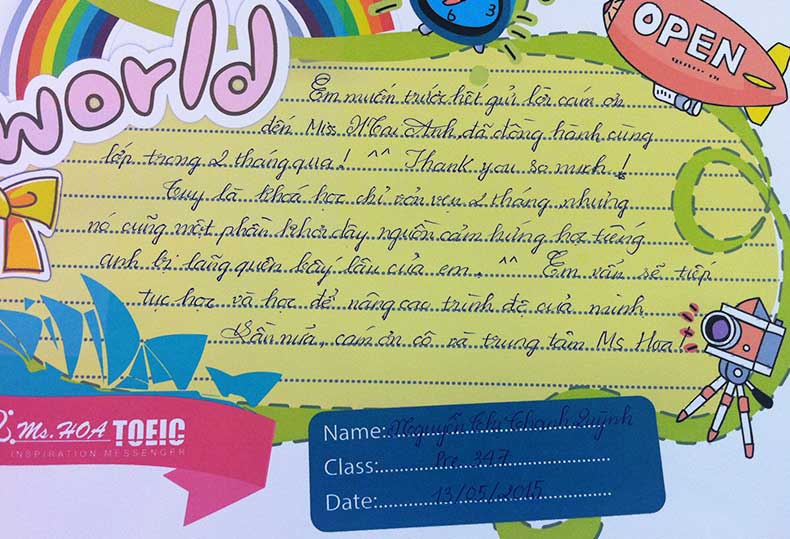 world
6 3
OPEN
Em muốn trước hết gửi lời cám ơn
đến Miss Mai Anh đã đồng hành cùng
lớp trong 2 tháng qua! ^^ Thank you so much!
Tuy là khoá học chỉ vỏn vẹn 2 tháng nhưng
nó cũng một phần khơi dậy nguồn cảm hứng học tiếng
anh bị lãng quên bấy lâu của em. ^^ Em vẫn sẽ tiếp
tục học và học để nâng cao trình độ của mình
Lần nữa, cám ơn cô và trung tâm Ms Hoa!
Ms. HOA TOEIC
INSPIRATION MESSENGER
Name: Nguyễn Thị Thanh Quỳnh
Class: Pre 347
Date: 13/05/2015